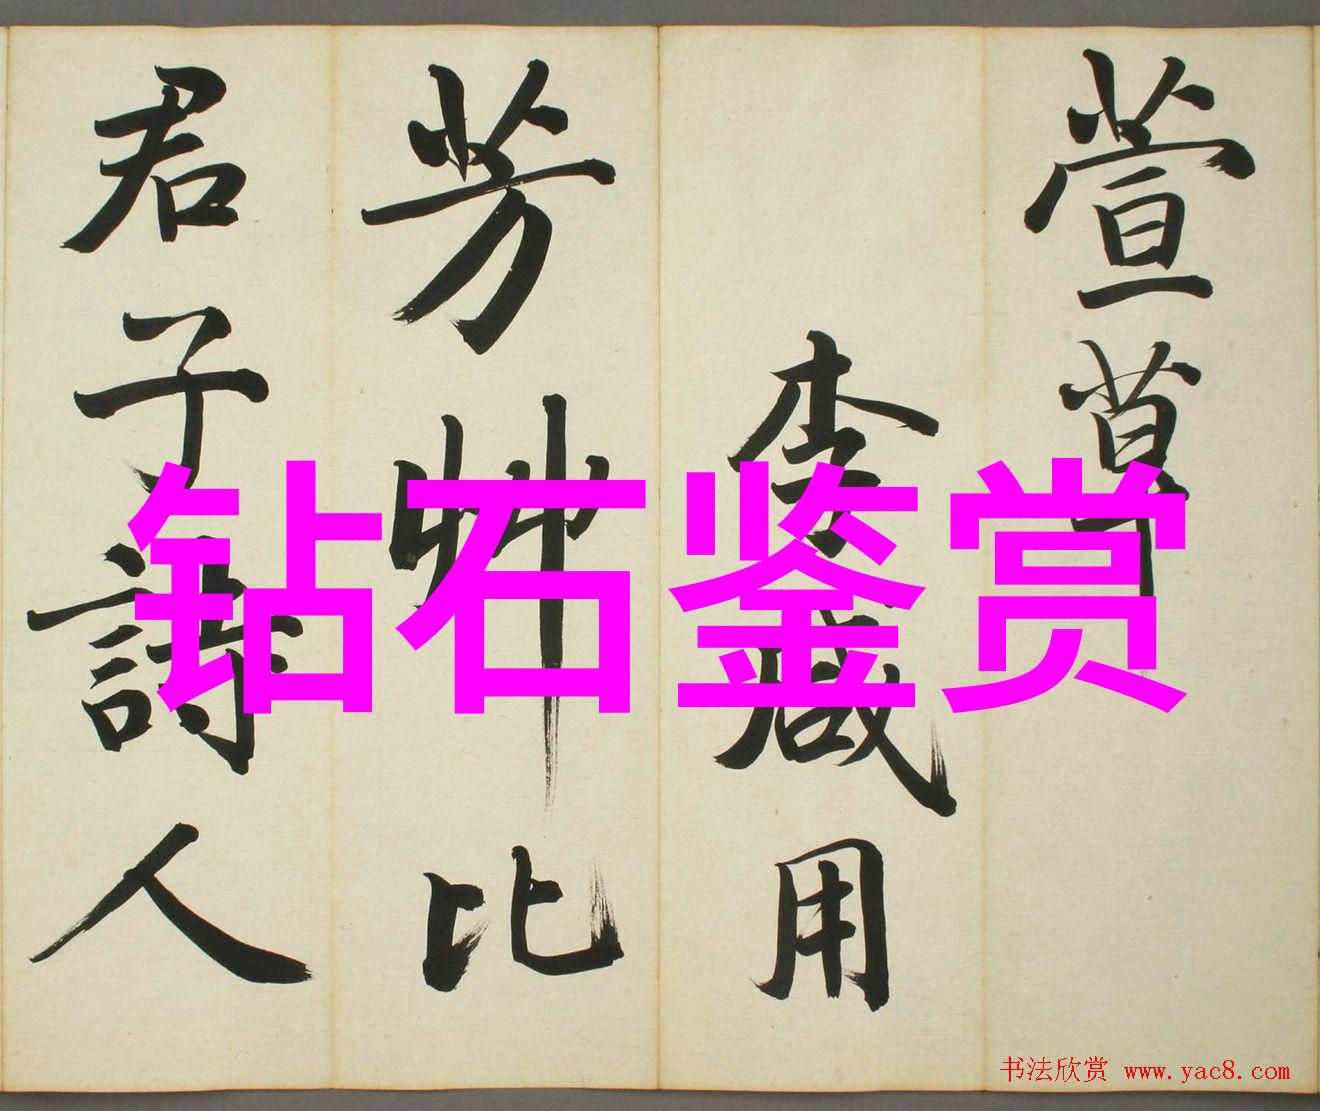 萱草
李咸用
芳艸比
君子詩人
钻石鉴赏
书法欣赏 www.yac8.com